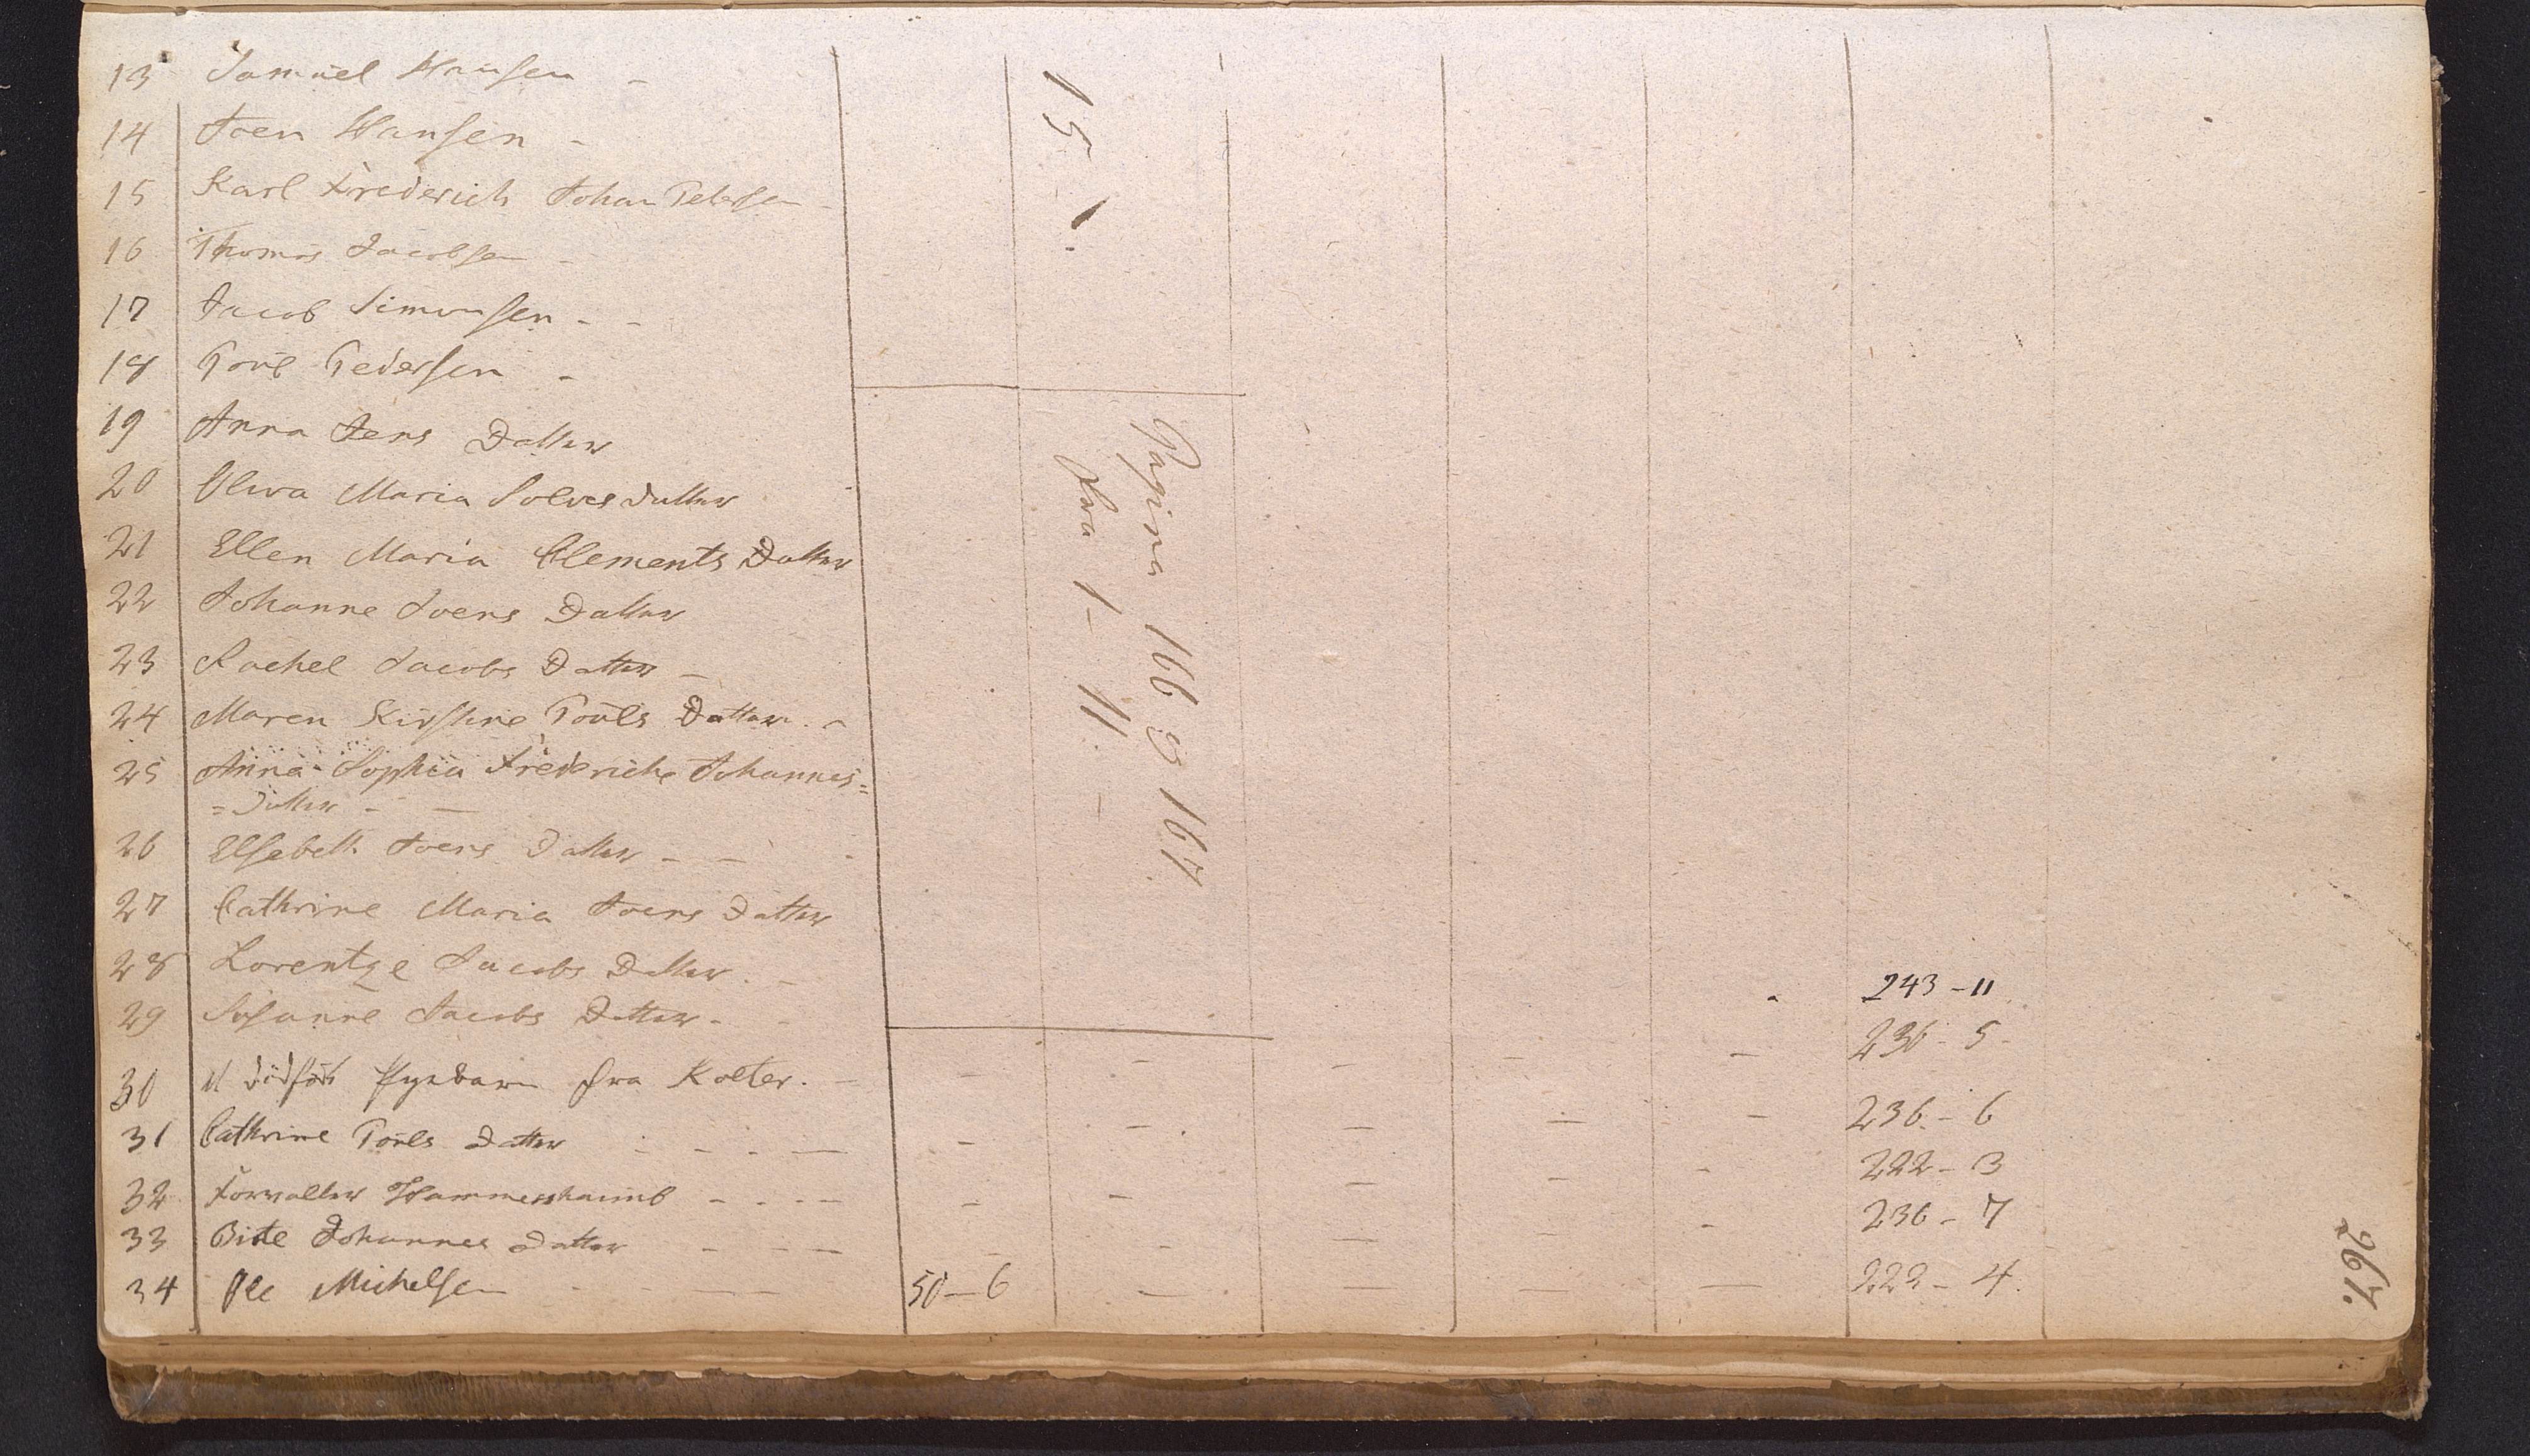 13 Samuel Hansen -
14 Joen Hansen -
15 Karl Frederich Johan Petersen -
16 Thomas Jacobsen -
17 Jacob Simonsen - -
18 Poul Pedersen -
19 Anna Jens Datter
20 Oliva Maria Solves datter
21 Ellen Maria Clements Datter
22 Johanne Joens Datter
23 Rachel Jacobs Datter -
24 Maren Kirstine Pouls Datter. -
25 Anna Sophia Frederiche Johannes=
=datter - -
26 Elsebeth Joens Datter - -
27 Cathrine Maria Joens Datter
28 Lorentze Jacobs Datter. -
29 Susanne Jacobs Datter - -
243 - 11
30 et dödfödt Pigebarn fra Kolter. - - - - - - 236 - 5 -
31 Cathrine Pouls Datter - - - - - - - - - 236 - 6
32 Forvalter Hammershaimb - - - - - - - - - 222 - 3
33 Bite Johannes Datter - - - - - - - - 236 - 7
34 Ole Michelsen - - - - 50 - 6 - - - - 222 - 4.
15 - 1.
Pagina 166 & 167
fra 1 - 11. -
267.